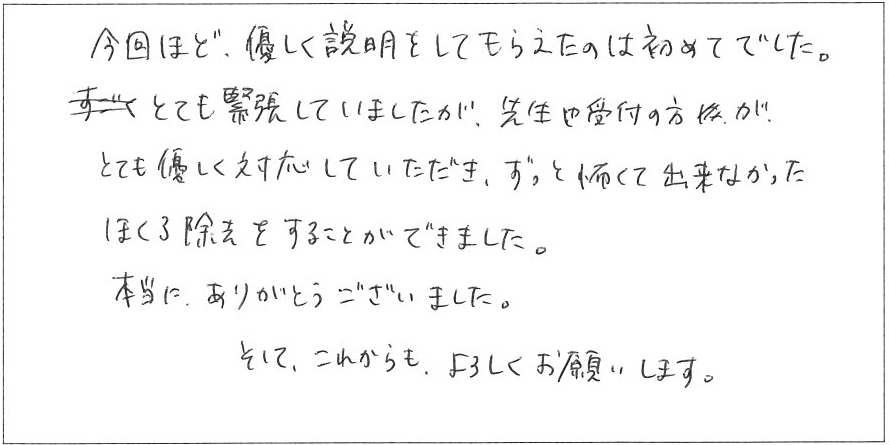 今回ほど、優しく説明をしてもらえたのは初めてでした。
すごくとても緊張していましたが、先生や受付の方々が、
とても優しく対応していただき、ずっと怖くて出来なかった
ほくろ除去をすることができました。
本当に、ありがとうございました。
そして、これからも、よろしくお願いします。